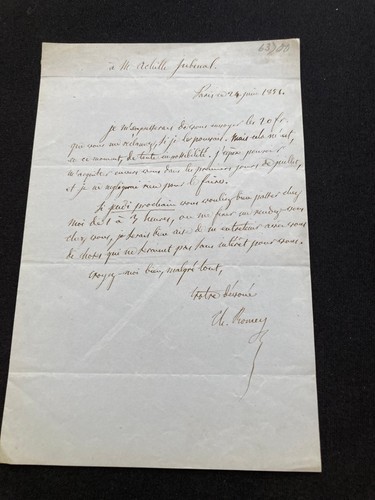 à Mr Achille Jubinal.
Paris ce 24 juin 1851.
Je m'empresserais de vous envoyer les 20 fr.
que vous me réclamez, si je le pouvais. Mais cela m'est,
en ce moment, de toute impossibilité. J'espère pouvoir
m'acquitter envers vous dans les premiers jours de juillet,
et je ne négligerai rien pour le faire.
Si jeudi prochain vous vouliez bien passer chez
moi de 1 à 3 heures, ou me fixer un rendez-vous
chez vous, je serais bien aise de m'entretenir avec vous
de choses qui ne seraient pas sans intérêt pour vous.
Croyez-moi bien, malgré tout,
Votre dévoué
Ch. Romey